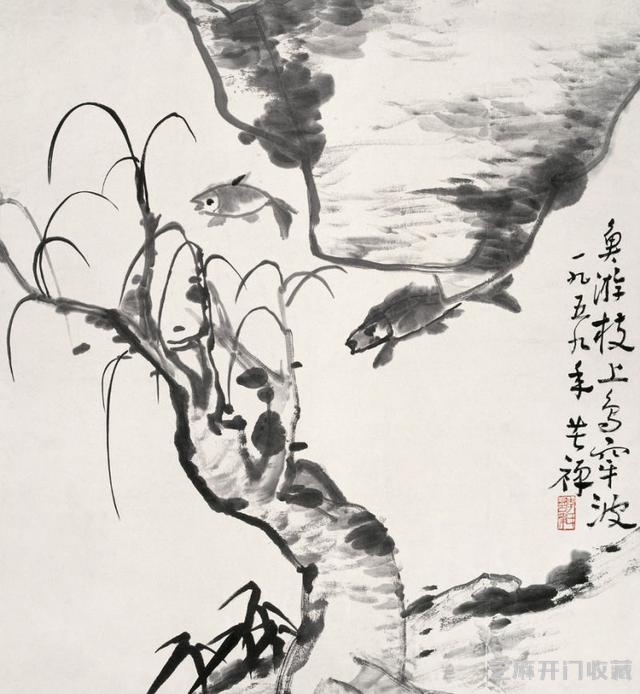 魚游枝上鸟穿波
一九五九年 苦禅
芝麻开门收藏